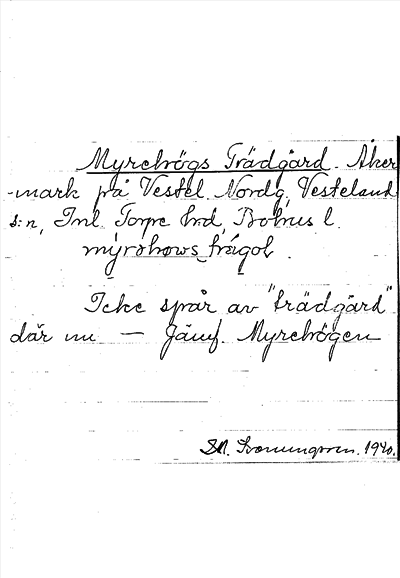 Myrehögs Trädgård. Åker
-mark på Vestel. Nordg, Vesteland
s:n, Inl Torpe hrd, Bohus l.
mýrəhows frégoḷ.
Icke spår av "trädgård"
där nu — Jämf. Myrehögen
1940.